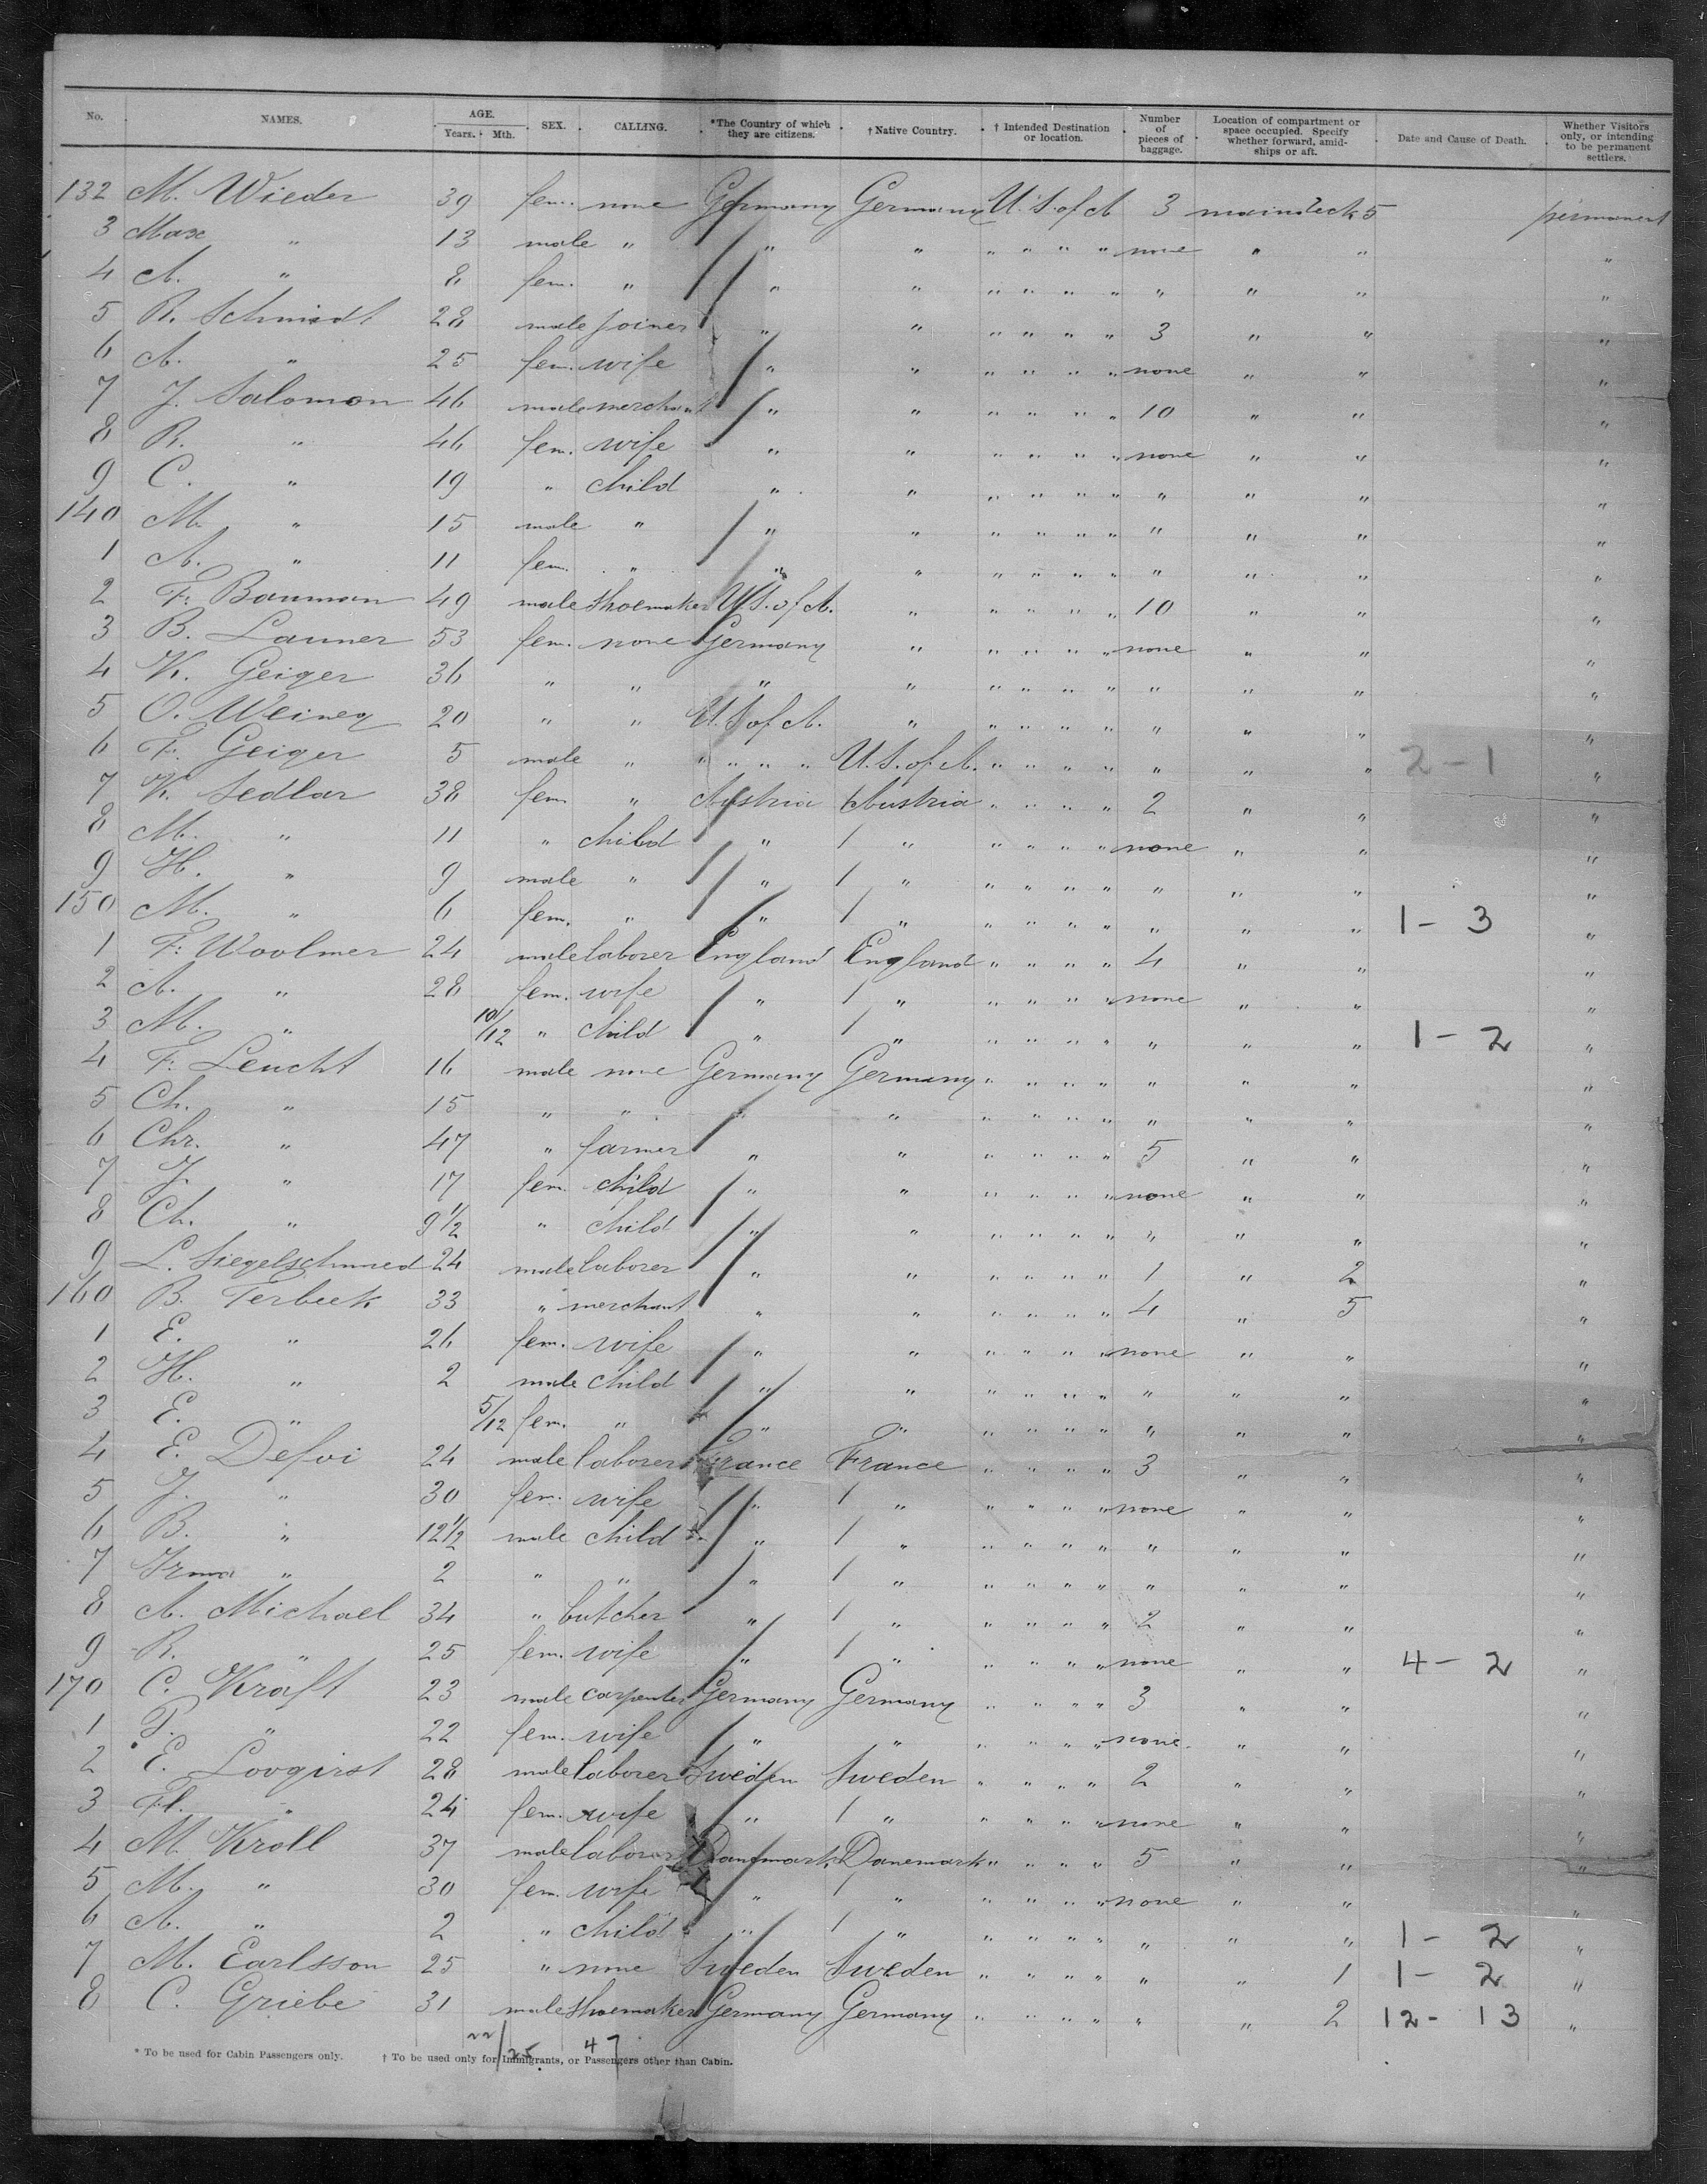 No. NAMES. AGE. Years. Mth. SEX. CALLING. *The Country of which they are citizens. † Native Country. † Intended Destination or location. Number of pieces of baggage. Location of compartment or space occupied. Specify whether forward, amidships or aft. Date and Cause of Death. Whether Visitors only, or intending to be permanent settlers.
132 M. Wieder 39 fem. none Germany Germany U.S. of A 3 maindeck 5 permanent
3 Max " 13 male " " " " " " " none " " "
4 A. " 8 fem. " " " " " " " " " " "
5 R. Schmidt 28 male joiner " " " " " " 3 " " "
6 A. " 25 fem. wife " " " " " " none " " "
7 J. Salomon 46 male merchant " " " " " " 10 " " "
8 R. " 46 fem. wife " " " " " " none " " "
9 C. " 19 " child " " " " " " " " " "
140 M. " 15 male " " " " " " " " " " "
1 A. " 11 fem. " " " " " " " " " " "
2 F. Bauman 49 male shoemaker U.S. of A. " " " " " 10 " " "
3 B. Launer 53 fem. none Germany " " " " " none " " "
4 K. Geiger 36 " " " " " " " " " " " "
5 O. Weineg 20 " " U.S. of A. " " " " " " " " "
6 F. Geiger 5 male " " " " " U.S. of A. " " " " " " " 2-1 "
7 K. Sedlar 38 fem " Austria Austria " " " " 2 " " "
8 M. " 11 " child " " " " " " none " " "
9 H. " 9 male " " " " " " " " " " "
150 M. " 6 fem. " " " " " " " " " " 1-3 "
1 F. Woolmer 24 male laborer England England " " " " 4 " " "
2 A. " 28 fem. wife " " " " " " none " " "
3 M. " 10/12 " child " " " " " " " " " 1-2 "
4 F. Leucht 16 male none Germany Germany " " " " " " " "
5 Ch. " 15 " " " " " " " " " " " "
6 Chr. " 47 " farmer " " " " " " 5 " " "
7 J. " 17 fem. child " " " " " " none " " "
8 Ch. " 9 1/2 " child " " " " " " " " " "
9 L. Siegelschmied 24 male laborer " " " " " " 1 " 2 "
160 B. Terbeek 33 " merchant " " " " " " 4 " 5 "
1 E. " 26 fem. wife " " " " " " none " " "
2 H. " 2 male child " " " " " " " " " "
3 E. " 5/12 fem. " " " " " " " " " " "
4 E. Defoi 24 male laborer France France " " " " 3 " " "
5 J. " 30 fem. wife " " " " " " none " " "
6 B. " 12 1/2 male child " " " " " " " " " "
7 Irma " 2 " " " " " " " " " " " "
8 A. Michael 34 " butcher " " " " " " 2 " " "
9 R. " 25 fem. wife " " " " " " none " " 4-2 "
170 C. Kraft 23 male carpenter Germany Germany " " " " 3 " " "
1 P. " 22 fem. wife " " " " " " none " " "
2 E. Lovqirst 28 male laborer Sweden Sweden " " " " 2 " " "
3 Fl. " 24 fem. wife " " " " " " none " " "
4 M. Kroll 37 male laborer Danemark Danemark " " " " 5 " " "
5 M. " 30 fem. wife " " " " " " none " " "
6 A. " 2 " child " " " " " " " " " 1-2 "
7 M. Earlsson 25 " none Sweden Sweden " " " " " " 1 1-2 "
8 C. Griebe 31 male shoemaker Germany Germany " " " " " " 2 12-13 "
22/25 47
* To be used for Cabin Passengers only. † To be used only for Immigrants, or Passengers other than Cabin.